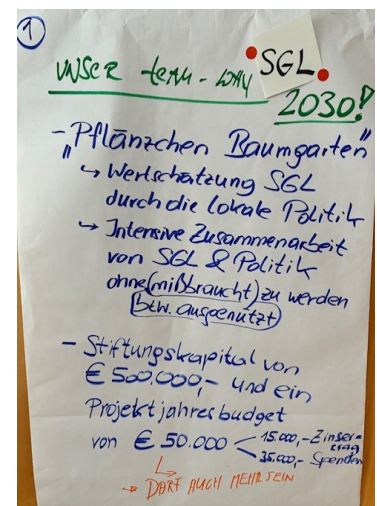 1
UNSER team-WAY SGL
2030!
- "Pflänzchen Baumgarten"
↳ Wertschätzung SGL
durch die lokale Politik
↳ Intensive Zusammenarbeit
von SGL & Politik
ohne (mißbraucht) zu werden
(btw. ausgenutzt)
- Stiftungskapital von
€ 500.000,- und ein
Projektjahresbudget
von € 50.000 < 15.000,- Zinser-
trag
35.000,- Spenden
↳ → DARF AUCH MEHR SEIN